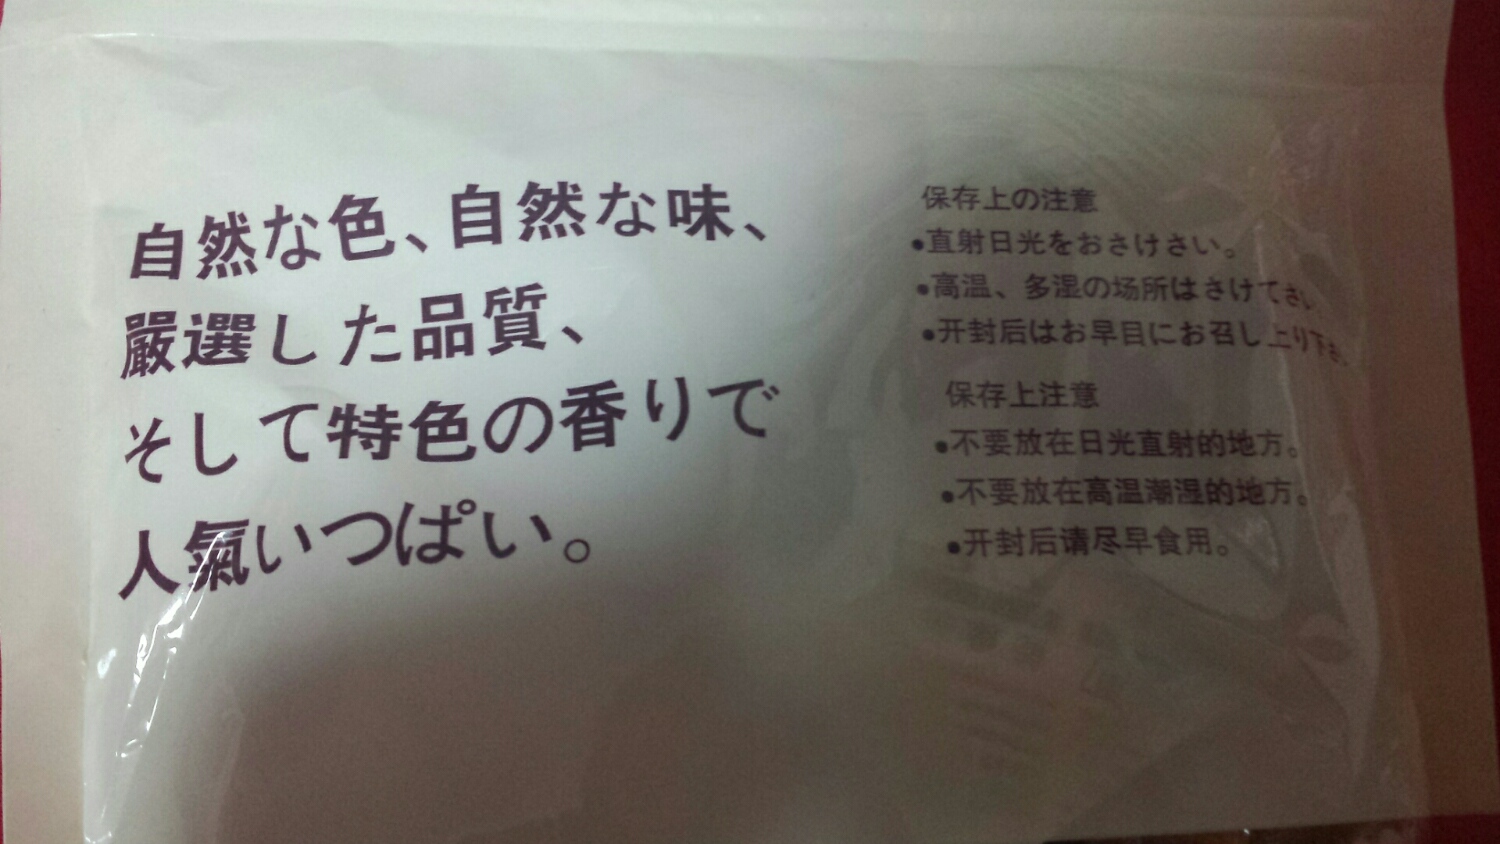 自然な色、自然な味、
嚴選した品質、
そして特色の香りで
人氣いつぱい。
保存上の注意
●直射日光をおさけさい。
●高温、多湿の场所はさけてさい
●开封后はお早目にお召し上り下さ
保存上注意
●不要放在日光直射的地方。
●不要放在高温潮湿的地方。
●开封后请尽早食用。